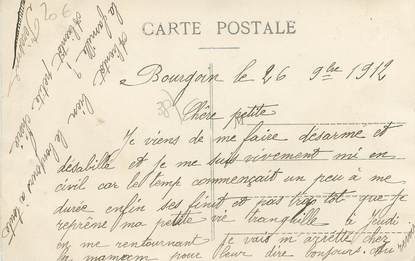 CARTE POSTALE
Bourgoin le 26 9bre 1912
Chère petite
Je viens de me faire désarme et
désabille et je me suis vivement mi en
civil car le temp commençait un peu a me
durée enfin ses finit et pas trop tot que je
reprène ma petite vie tranquille à Jeudi
en me rentournant je vais m'arrété chez
la maman pour leur dire bonjours. Au revoir
la famille
206